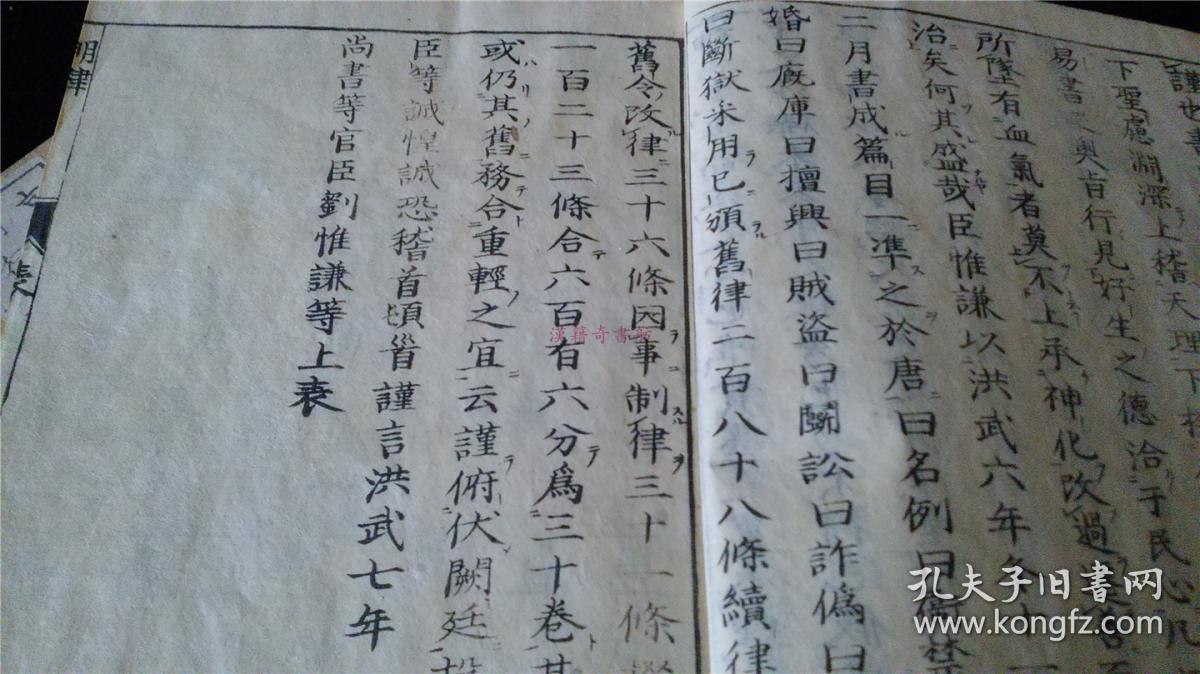 謹也
下聖慮淵深上稽天理下
易書之奧旨行見好生之德洽于民心凡
所墜有血氣者莫不上承神化改過
治矣何其盛哉臣惟謙以洪武六年冬十一
二月書成篇目一準之於唐曰名例曰衛禁
婚曰廐庫曰擅興曰賊盜曰鬭訟曰詐偽曰
曰斷獄采用已頒舊律二百八十八條續律
舊令改律三十六條因事制律三十一條
一百二十三條合六百有六分爲三十卷其
或仍其舊務合重輕之宜云謹俯伏闕廷
臣等誠惶誠恐稽首頓首謹言洪武七年
尚書等官臣劉惟謙等上表
明律
表
漢籍奇書
孔夫子旧书网
www.kongfz.com